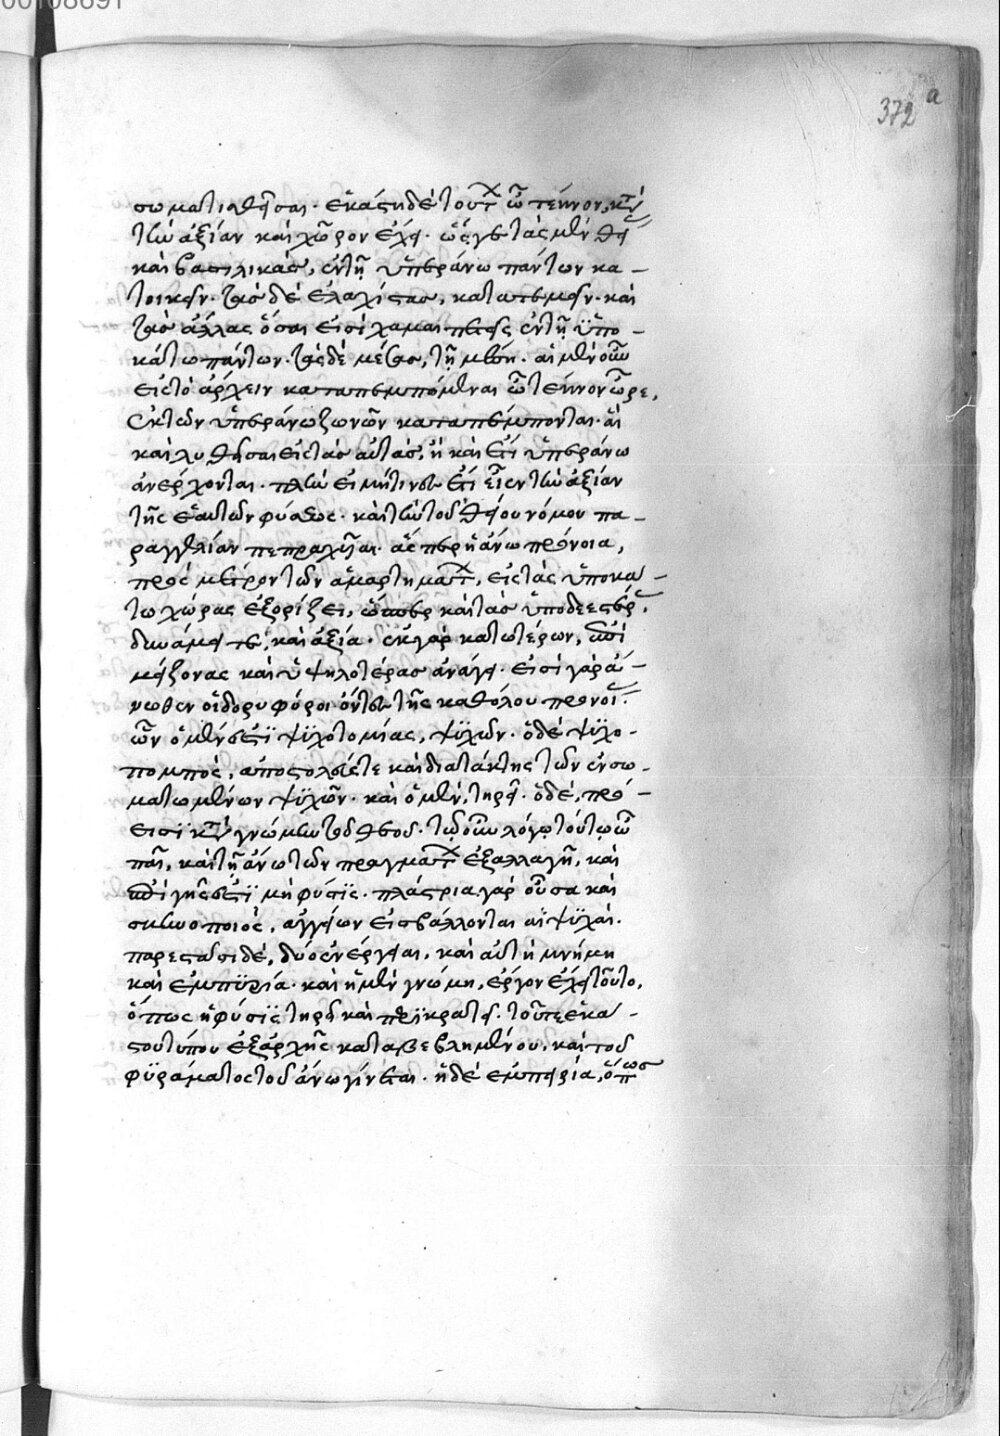 00108691
372 a
σωματισθῆσαι. ἑκάστη δὲ τούτων ὦ τέκνον, κατὰ
τὴν ἀξίαν καὶ χῶρον ἔχει. ὥς γε τὰς μὲν θεί
καὶ βασιλικὰς, ἐν τῇ ὑπεράνω πάντων κα-
τοικεῖν. τὰς δὲ ἐλαχίστας, κατωτεμοῖν. καὶ
τὰς ἄλλας ὅσαι εἰσὶ χαμαιπετεῖς ἐν τῇ ὑπο-
κάτω πάντων. τὰς δὲ μέσας, τῇ μέσῃ. αἱ μὲν οὖν
εἰς τὸ ἄρχειν καταπεμπόμεναι ὦ τέκνον ὧρε,
ἐκ τῶν ὑπεράνω ζωνῶν καταπέμπονται. αἳ
καὶ λυθεῖσαι εἰς τὰς αὐτὰς, ἢ καὶ ἔτι ὑπεράνω
ἀνέρχονται. πλὴν εἰ μή τινες ἔτι εἶεν τὴν ἀξίαν
τῆς ἑαυτῶν φύσεως. καὶ τὴν τοῦ θείου νόμου πα-
ραγγελίαν πεπραχῆται. ἅσπερ ἡ ἄνω πρόνοια,
πρὸς μέτρον τῶν ἁμαρτημάτων, εἰς τὰς ὑποκά-
τω χώρας ἐξορίζει, ὥσπερ καὶ τὰς ὑποδεεστέρ
δυνάμει τε, καὶ ἀξία. ἐκ γὰρ κατωτέρων, ἐπὶ
μείζονας καὶ ὑψηλοτέρας ἀνάγει. εἰσὶ γὰρ ἄ-
νωθεν οἱ δορυφόροι ὄντες τῆς καθόλου προνοί
ὧν ὁ μὲν ἐστὶ ψυχοτομίας, ψυχῶν. ὁ δὲ ψυχο-
πομπὸς, ἀποστολεύς τε καὶ διατάκτης τῶν ἐνσω-
ματωμένων ψυχῶν. καὶ ὁ μὲν, τηρεῖ. ὁ δὲ, πρό-
εισι κατὰ γνώμην τοῦ θεοῦ. τῷ οὖν λόγῳ τούτῳ ὦ
παῖ, καὶ τῇ ἄνω τῶν πραγμάτων ἐξαλλαγῇ, καὶ
ἐπὶ γῆς ἐστὶ μὴ φύσις. πλάστρια γὰρ οὖσα καὶ
σκηνοποιὸς, ἀγγεῖον εἰσβάλλονται αἱ ψυχαί.
παρεστᾶσι δὲ, δύο ἐνέργειαι. καὶ αὐτὴ μνήμη
καὶ ἐμπειρία. καὶ ἡ μὲν γνώμη, ἔργον ἔχει τοῦτο,
ὅπως ἡ φύσις τηροῖ καὶ ἐπικρατεῖ. τοῦ τε ἑκά-
στου τύπου ἐξ ἀρχῆς καταβεβλημένου. καὶ τοῦ
φυράματος τοῦ ἄνω γίνεται. ἡ δὲ ἐμπειρία, ὅπως